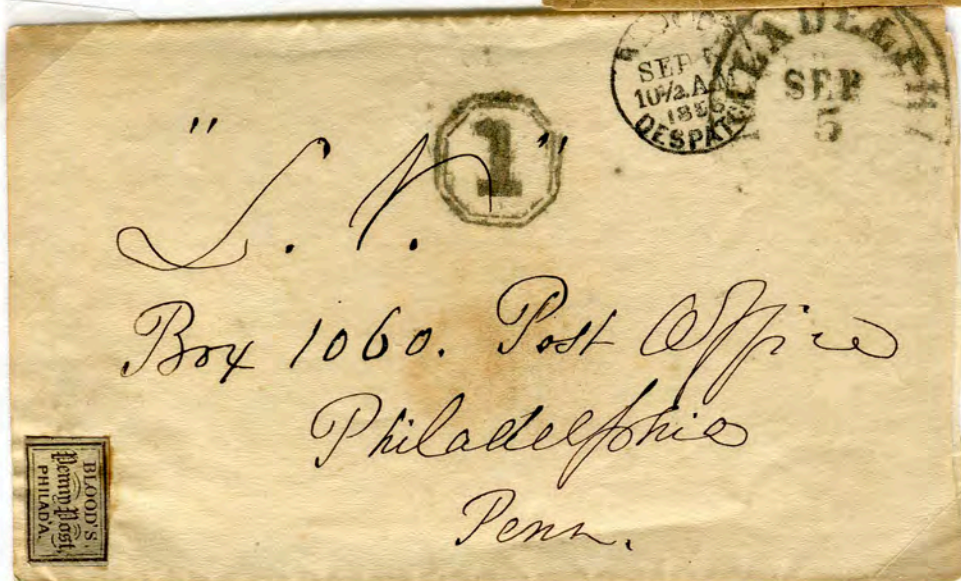 SEP
10½ A.M
1856
DESPATCH
SEP
5
1
"L. V."
Box 1060. Post Office
Philadelphia
Penn.
BLOOD'S
Penny Post,
PHILAD'A.